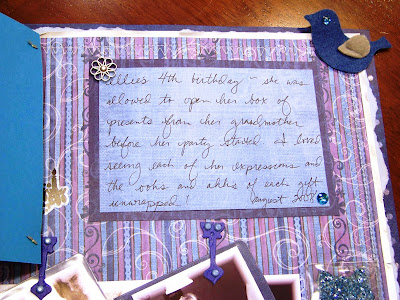 Ellie's 4th birthday ~ she was
allowed to open her box of
presents from her grandmother
before her party started. I loved
seeing each of her expressions and
the oohs and ahh's of each gift
unwrapped! August 2008